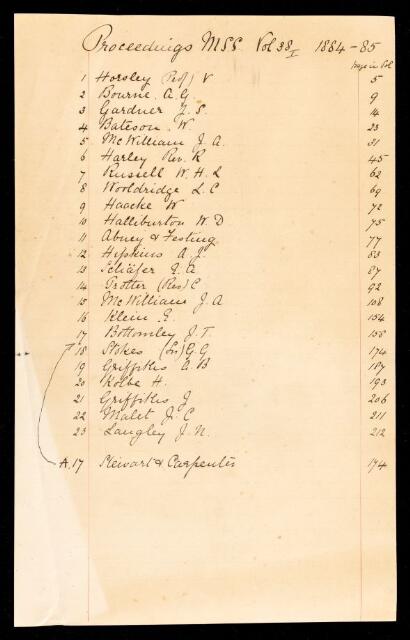 Proceedings MSS. Vol 38 I 1884-85
Page in Vol
1 Horsley (Prof) V 5
2 Bourne A. G. 9
3 Gardner J. S. 14
4 Bateson W. 23
5 McWilliam J. A. 31
6 Harley Rev. R 45
7 Russell W. H. L 62
8 Wooldridge L. C 69
9 Haacke W 72
10 Halliburton W. D 75
11 Abney & Festing 77
12 Hipkins A. J. 83
13 Schäfer E. A. 87
14 Trotter (Res) C 92
15 McWilliam J. A 108
16 Klein E. 154
17 Bottomley J. T. 158
18 Stokes (Sir) G. G 174
19 Griffiths A. B 187
20 Kolbe H. 193
21 Griffiths J 206
22 Malet J. C 211
23 Langley J. N. 212
A. 17 Stewart & Carpenter 174